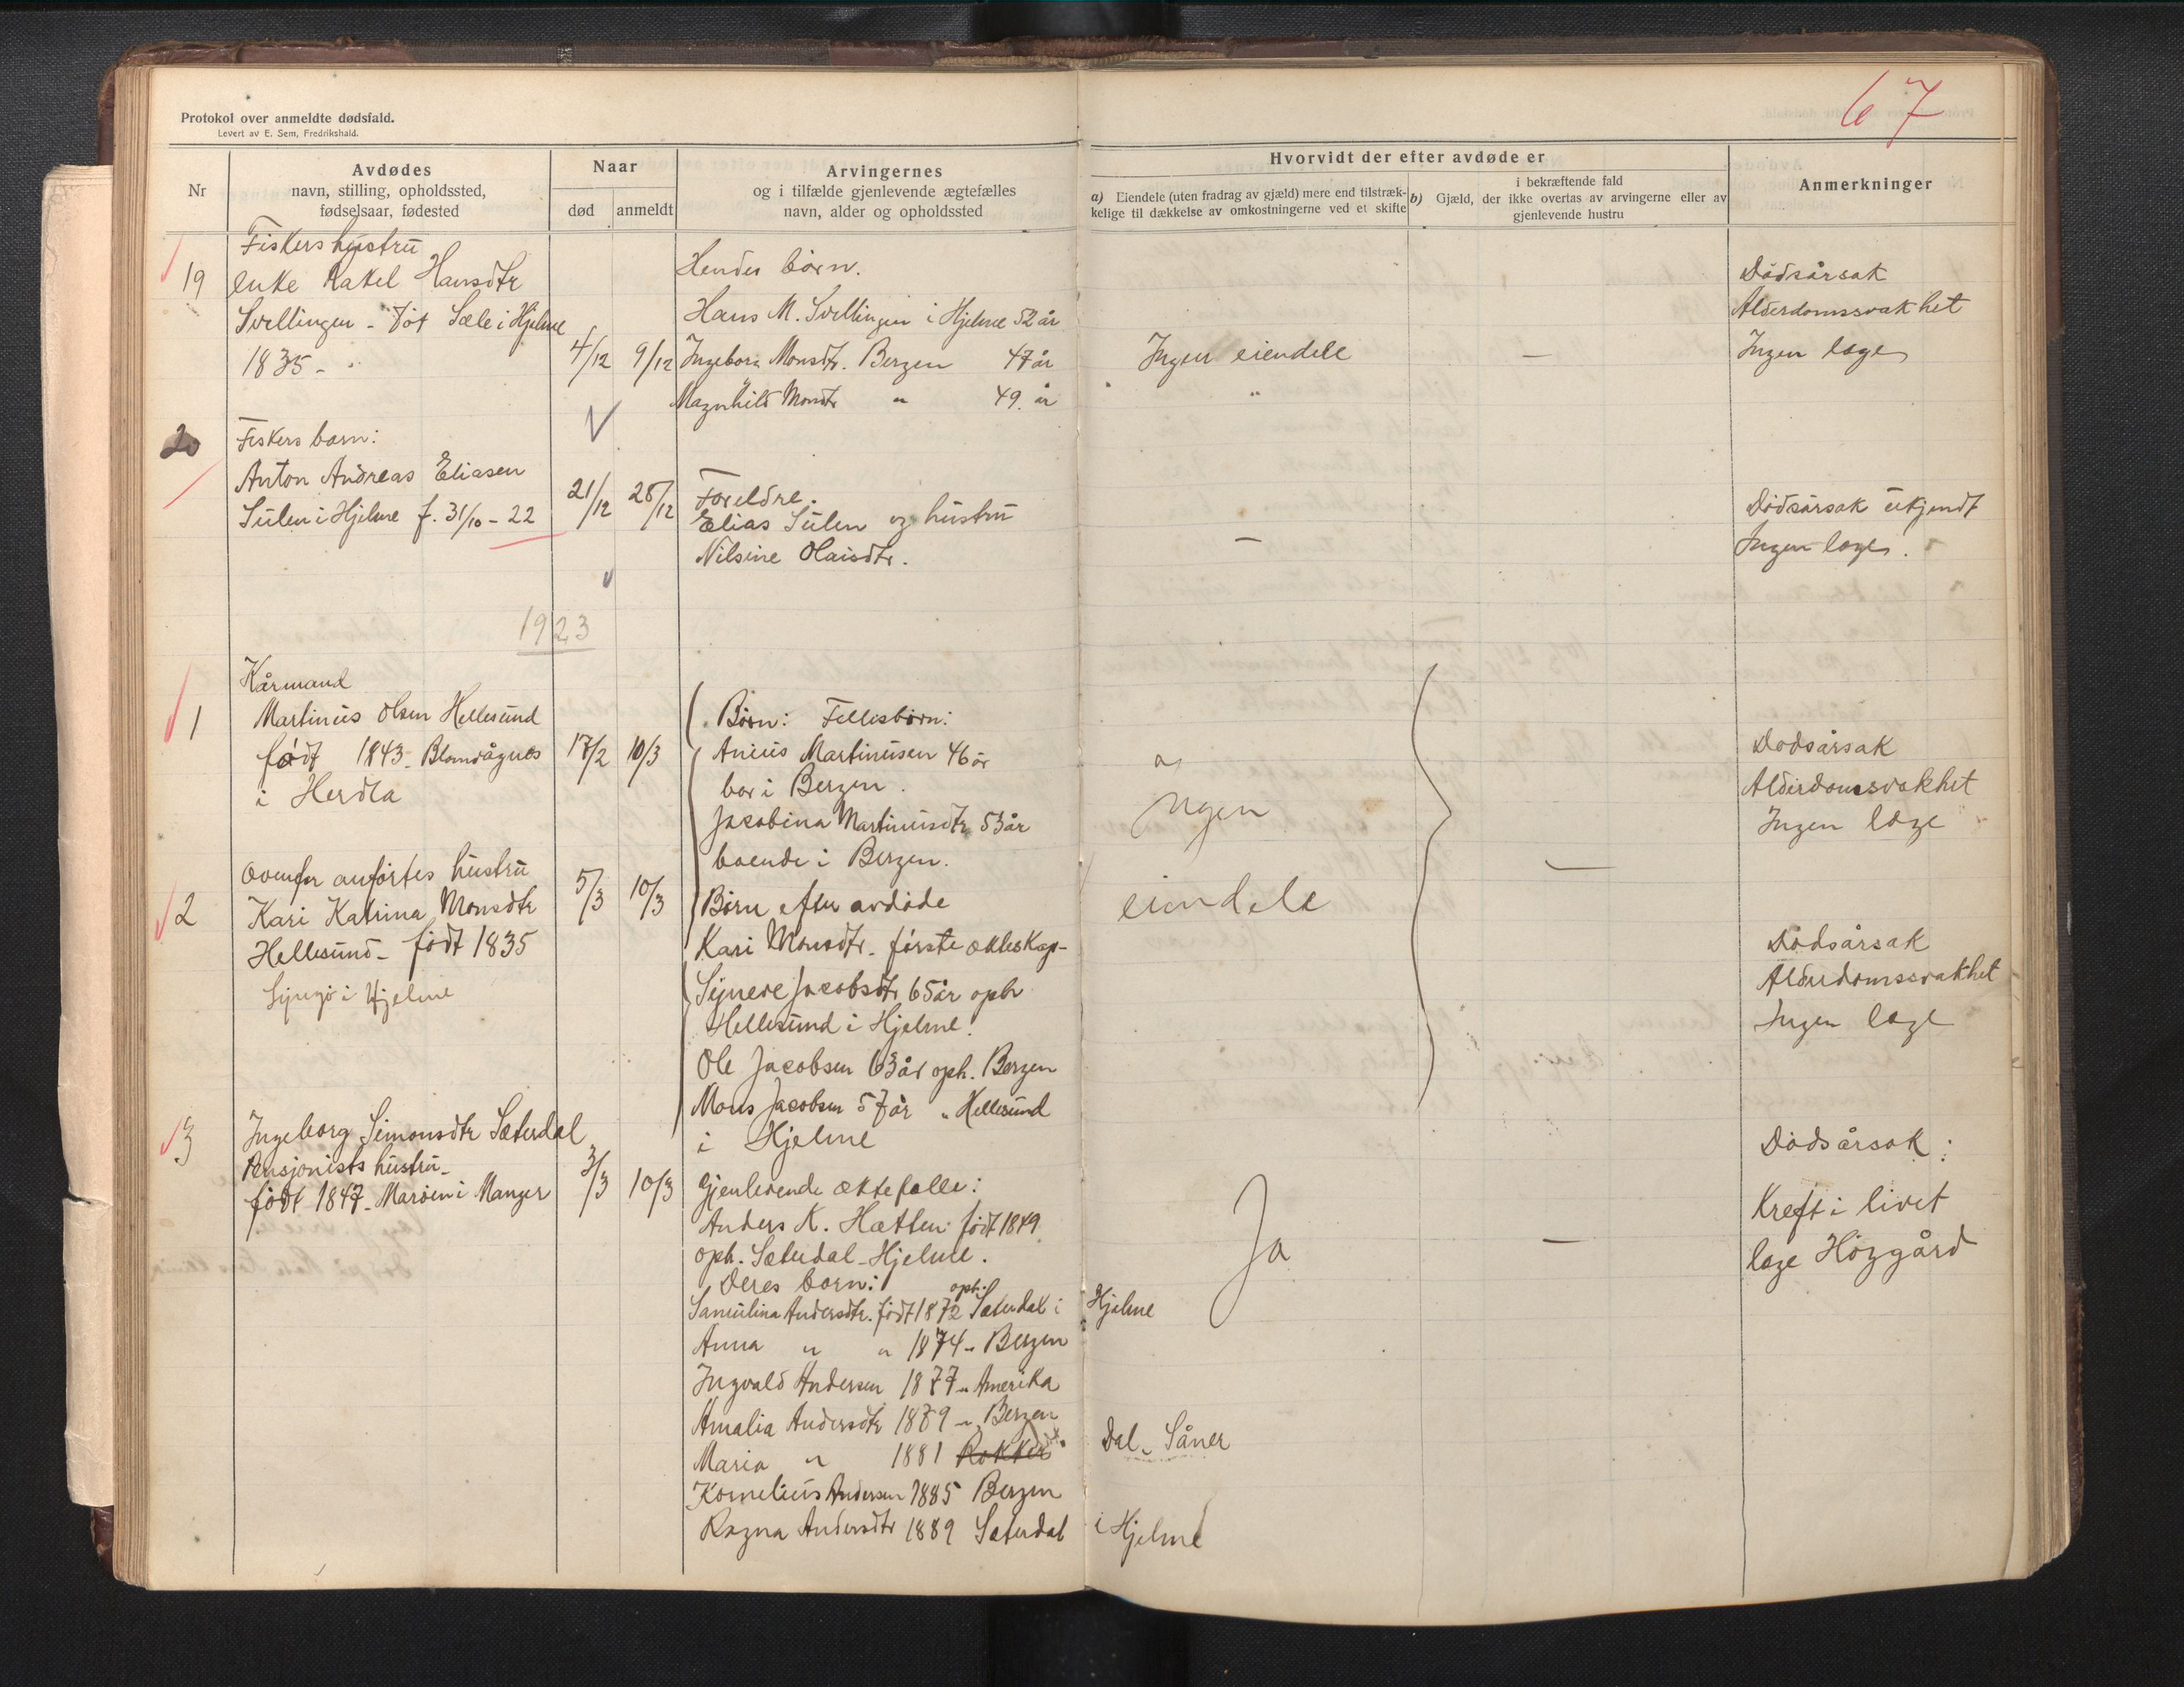 67
Protokol over anmeldte dødsfald.
Levert av E. Sem, Fredrikshald.
Nr
Avdødes
navn, stilling, opholdssted,
fødselsaar, fødested
Naar
død
anmeldt
Arvingernes
og i tilfælde gjenlevende ægtefælles
navn, alder og opholdssted
Hvorvidt der efter avdøde er
a) Eiendele (uten fradrag av gjæld) mere end tilstræk-
kelige til dækkelse av omkostningerne ved et skifte
b) Gjæld,
i bekræftende fald
der ikke overtas av arvingerne eller av
gjenlevende hustru
Anmerkninger
19
Fiskers hustru
enke Rakel Hansdtr
Svellingen - føt Sæle i Hjelme
1835 -
4/12
9/12
Hendes børn.
Hans M. Svellingen i Hjelme 52 år
Ingeborg Monsdt. Bergen 47 år
Magnhild Monsdtr " 49. år
Ingen eiendele
—
Dødsårsak
Alderdomssvakhet
Ingen læge
20
Fiskers barn:
Anton Andreas Eliasen
Sulen i Hjelme f. 31/10 - 22
21/12
28/12
Foreldre.
Elias Sulen og hustru
Nilsine Olaisdtr.
—
Dødsårsak ukjendt
Ingen læge.
1923
1
Kårmand
Martinus Olsen Hellesund
født 1843 - Blomvågnes
i Herdla
17/2
10/3
Børn: Fellisbørn:
Anius Martinusen 46 år
bor i Bergen.
Jacobina Martinusdtr 53 år
boende i Bergen.
Ingen
eiendele
—
Dødsårsak
Alderdomssvakhet
Ingen læge
2
Ovenfor anførtes hustru
Kari Katrina Monsdtr
Hellesund - født 1835
Syngø i Hjelme
5/3
10/3
Børn efter avdøde
Kari Monsdtr. første ækteskap -
Syneve Jacobsdtr 65 år oph
Hellesund i Hjelme.
Ole Jacobsen 63 år oph. Bergen
Mons Jacobsen 57 år " Hellesund
i Hjelme
Dødsårsak
Alderdomssvakhet
Ingen læge
3
Ingeborg Simonsdtr Sæterdal
Pensjonists hustru -
født 1847 - Marøen i Manger
3/3
10/3
Gjenlevende ektefælle:
Anders K. Hatten født 1849
oph. Sæterdal - Hjelme.
Deres børn:
Samulina Andersdtr. født 1872 oph. Sæterdal i Hjelme
Anna " " 1874 - Bergen
Ingvald Andersen 1877 " Amerika
Amalia Andersdtr 1879 " Bergen
Maria " 1881 Rokker Dal - Såner
Kornelius Andersen 1885 Bergen
Ragna Andersdtr 1889 Sæterdal i Hjelme
Ja
—
Dødsårsak:
Kreft i livet
læge Høzgård